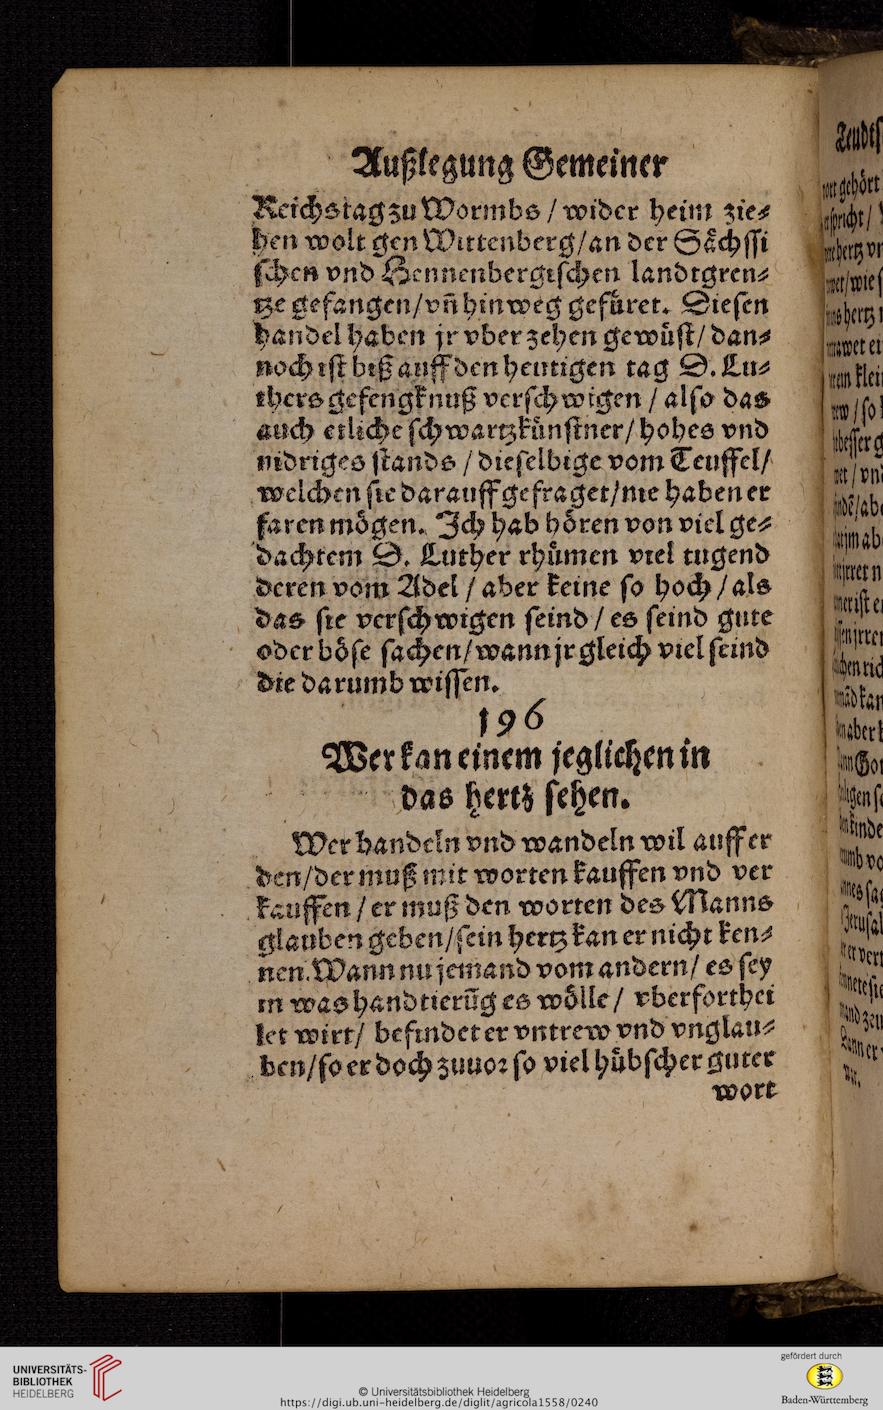 Außlegung Gemeiner
Reichstag zu Wormbs / wider heim zie⸗
hen wolt gen Wittenberg/an der Sächssi
schen vnd Hennenbergischen landtgren⸗
tze gefangen/vn̄ hinweg gefüret. Diesen
handel haben jr vber zehen gewüst/ dan⸗
noch ist biß auff den heutigen tag D. Lu⸗
thers gefengknuß verschwigen / also das
auch etliche schwartzkünstner/ hohes vnd
nidriges stands / dieselbige vom Teuffel/
welchen sie darauff gefraget/nie haben er
faren mögen. Ich hab hören von viel ge⸗
dachtem D. Luther rhümen viel tugend
deren vom Adel / aber keine so hoch / als
das sie verschwigen seind / es seind gute
oder böse sachen/wann jr gleich viel seind
die darumb wissen.
196
Wer kan einem jeglichen in
das hertz sehen.
Wer handeln vnd wandeln wil auff er
den/der muß mit worten kauffen vnd ver
kauffen / er muß den worten des Manns
glauben geben/sein hertz kan er nicht ken⸗
nen. Wann nu jemand vom andern/ es sey
in was handtierūg es wölle / vberforthei
let wirt/ befindet er vntrew vnd vnglau⸗
ben/so er doch zuuor so viel hübscher guter
wort
UNIVERSITÄTS-
BIBLIOTHEK
HEIDELBERG
© Universitätsbibliothek Heidelberg
https://digi.ub.uni-heidelberg.de/diglit/agricola1558/0240
gefördert durch
Baden-Württemberg